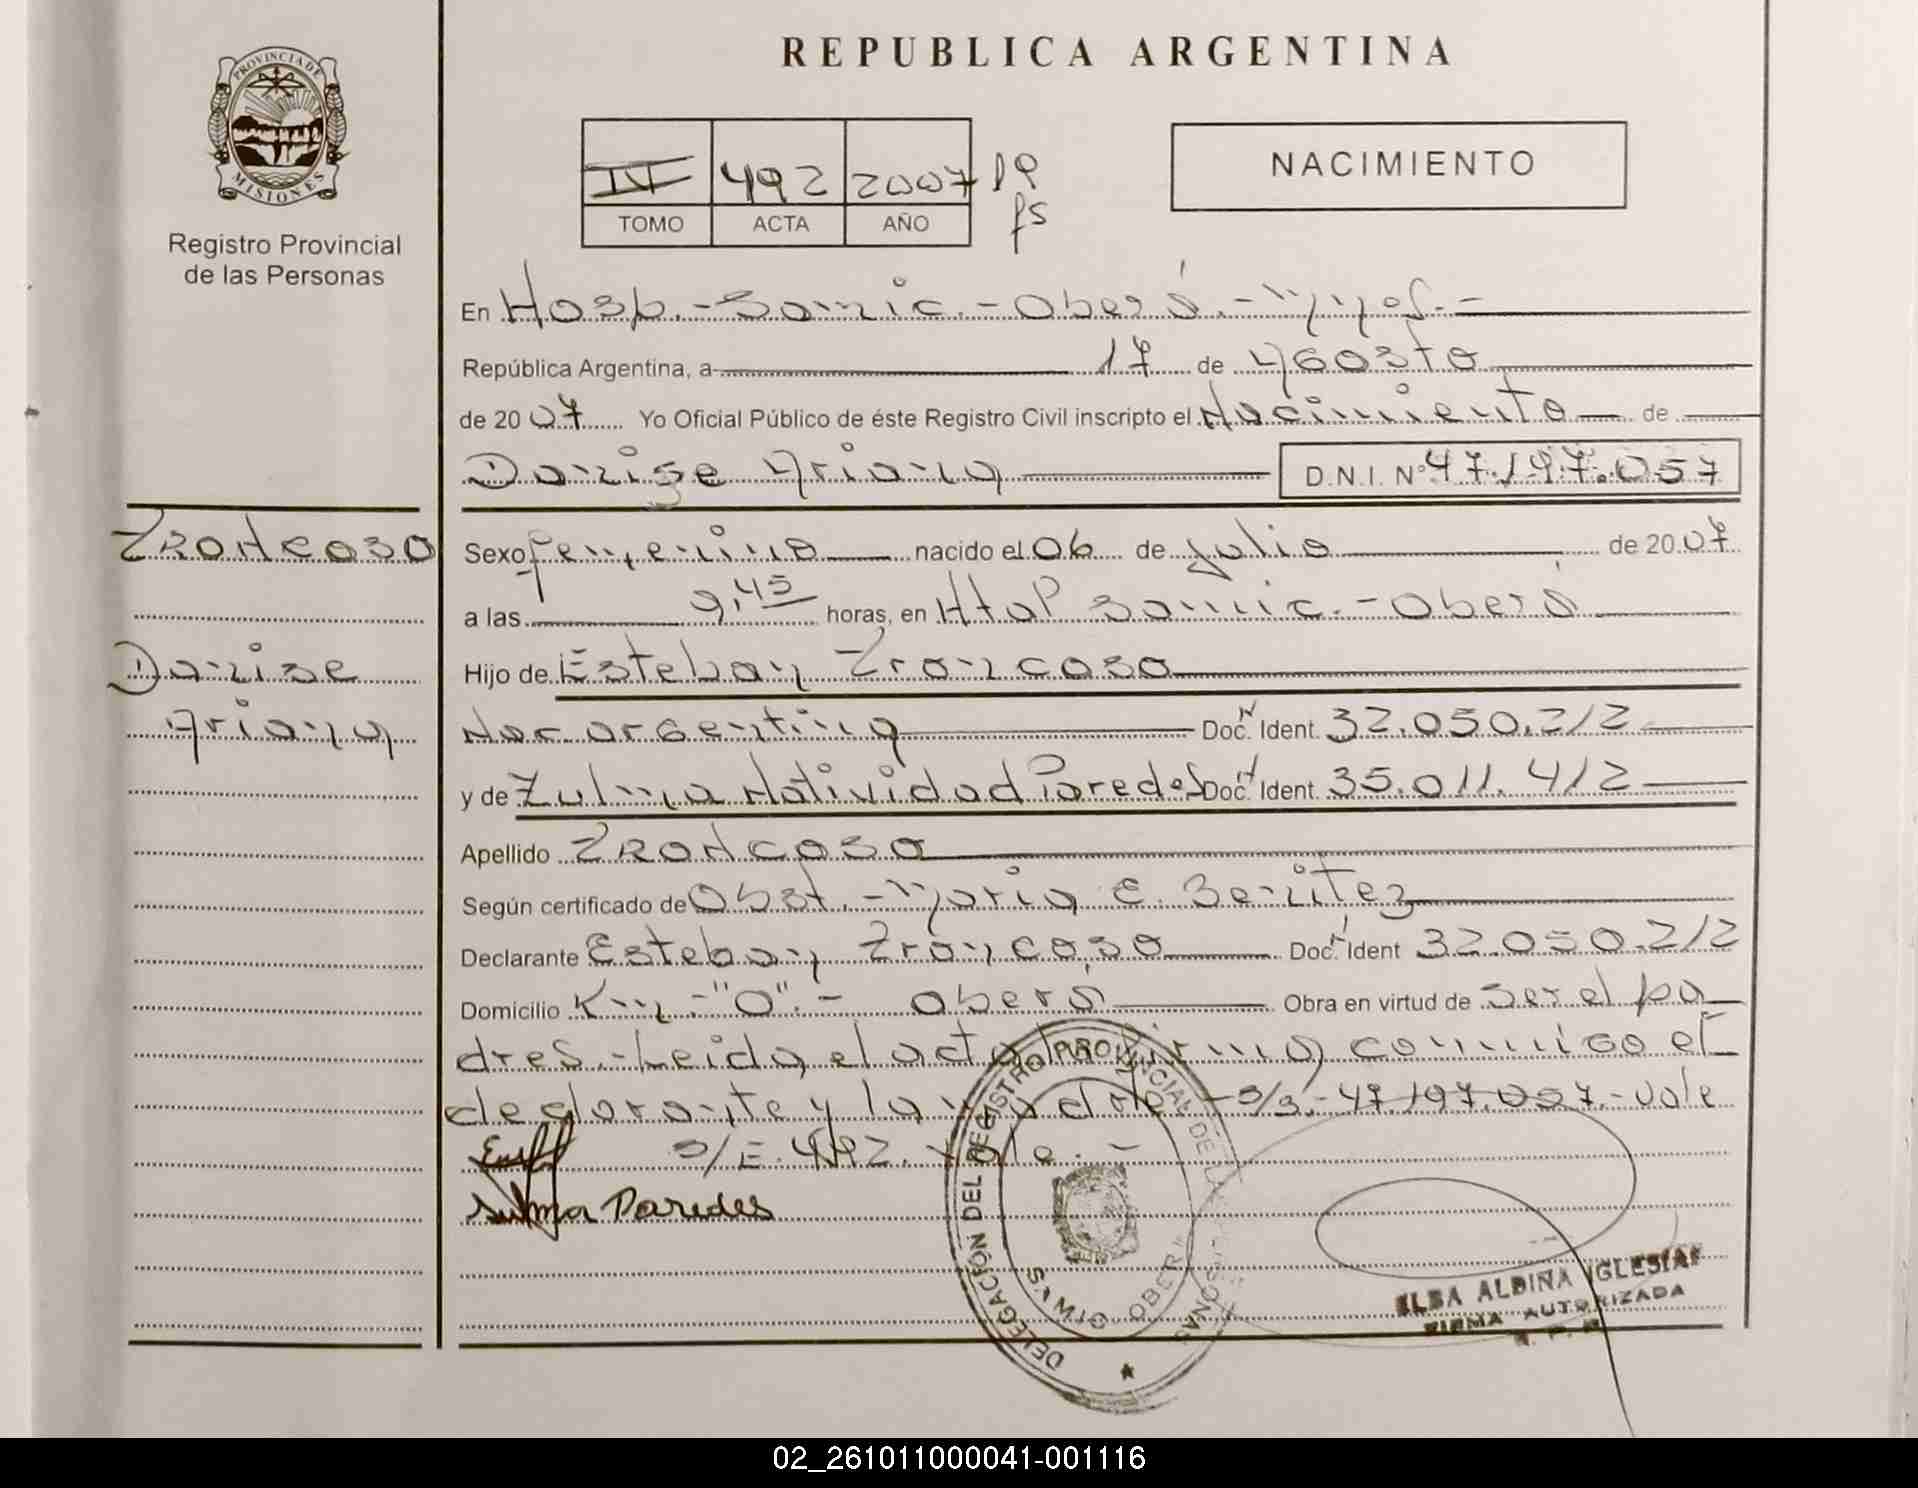 PROVINCIA DE
MISIONES
Registro Provincial
de las Personas
REPUBLICA ARGENTINA
IV 492 2007
TOMO ACTA AÑO
NACIMIENTO
En Hosp.-Samic.-Oberá.-Mnes.-
República Argentina, a 17 de Agosto
de 2007 Yo Oficial Público de éste Registro Civil inscripto el Nacimiento de
Danise Ariana D.N.I. Nº 47.197.057
Troncoso
Danise
Ariana
Sexo femenino nacido el 06 de julio de 2007
a las 9,45 horas, en Htal Samic.-Oberá
Hijo de Esteban Troncoso
Nac argentina Doc. Ident. 32.050.212
y de Zulma Natividad Paredes Doc. Ident. 35.011.412
Apellido TRONCOSO
Según certificado de Obst.-Maria E. Benitez
Declarante Esteban Troncoso Doc. Ident 32.050.212
Domicilio Km-"0".- Oberá Obra en virtud de ser el pa
dres.-Leida el acta la firma conmigo el
declarante y la madre -S/B.-47.197.057.-Vale
S/E.492.Vale.-
Sulma Paredes
DELEGACIÓN DEL REGISTRO PROVINCIAL DE LAS PERSONAS
OBERA
ELBA ALBINA IGLESIAS
FIRMA AUTORIZADA
R. P. P.
02_261011000041-001116